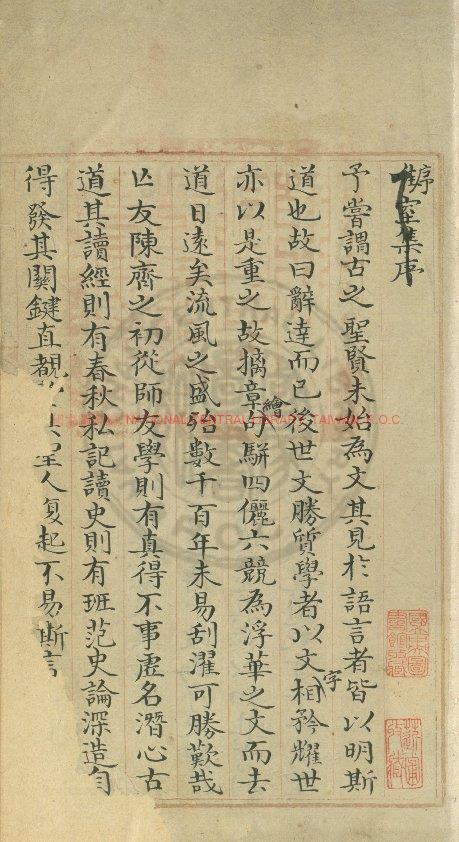 齋集序
予嘗謂古之聖賢未始為文其見於語言者皆以明斯
道也故曰辭達而已後世文勝質學者以文字相矜耀世
亦以是重之故摘章繪句駢四儷六競為浮華之文而去
道日遠矣流風之盛殆數千百年未易刮濯可勝歎哉
亡友陳齊之初從師友學則有真得不事虛名潛心古
道其讀經則有春秋私記讀史則有班范史論深造自
得發其關鍵直覩 聖人复起不易斯言
NATIONAL CENTRAL LIBRARY, TAIWAN, R.O.C